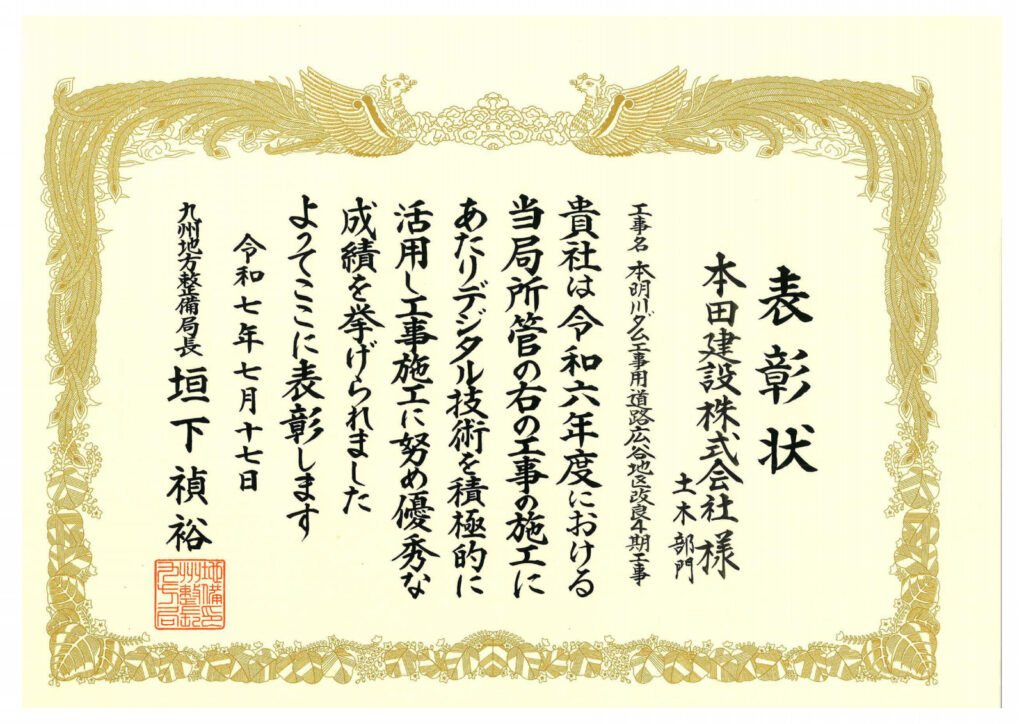 表彰状
本田建設株式会社様
土木部門
工事名 本明川ダム工事用道路広谷地区改良4期工事
貴社は令和六年度における
当局所管の右の工事の施工に
あたりデジタル技術を積極的に
活用し工事施工に努め優秀な
成績を挙げられました
よってここに表彰します
令和七年七月十七日
九州地方整備局長 垣下禎裕